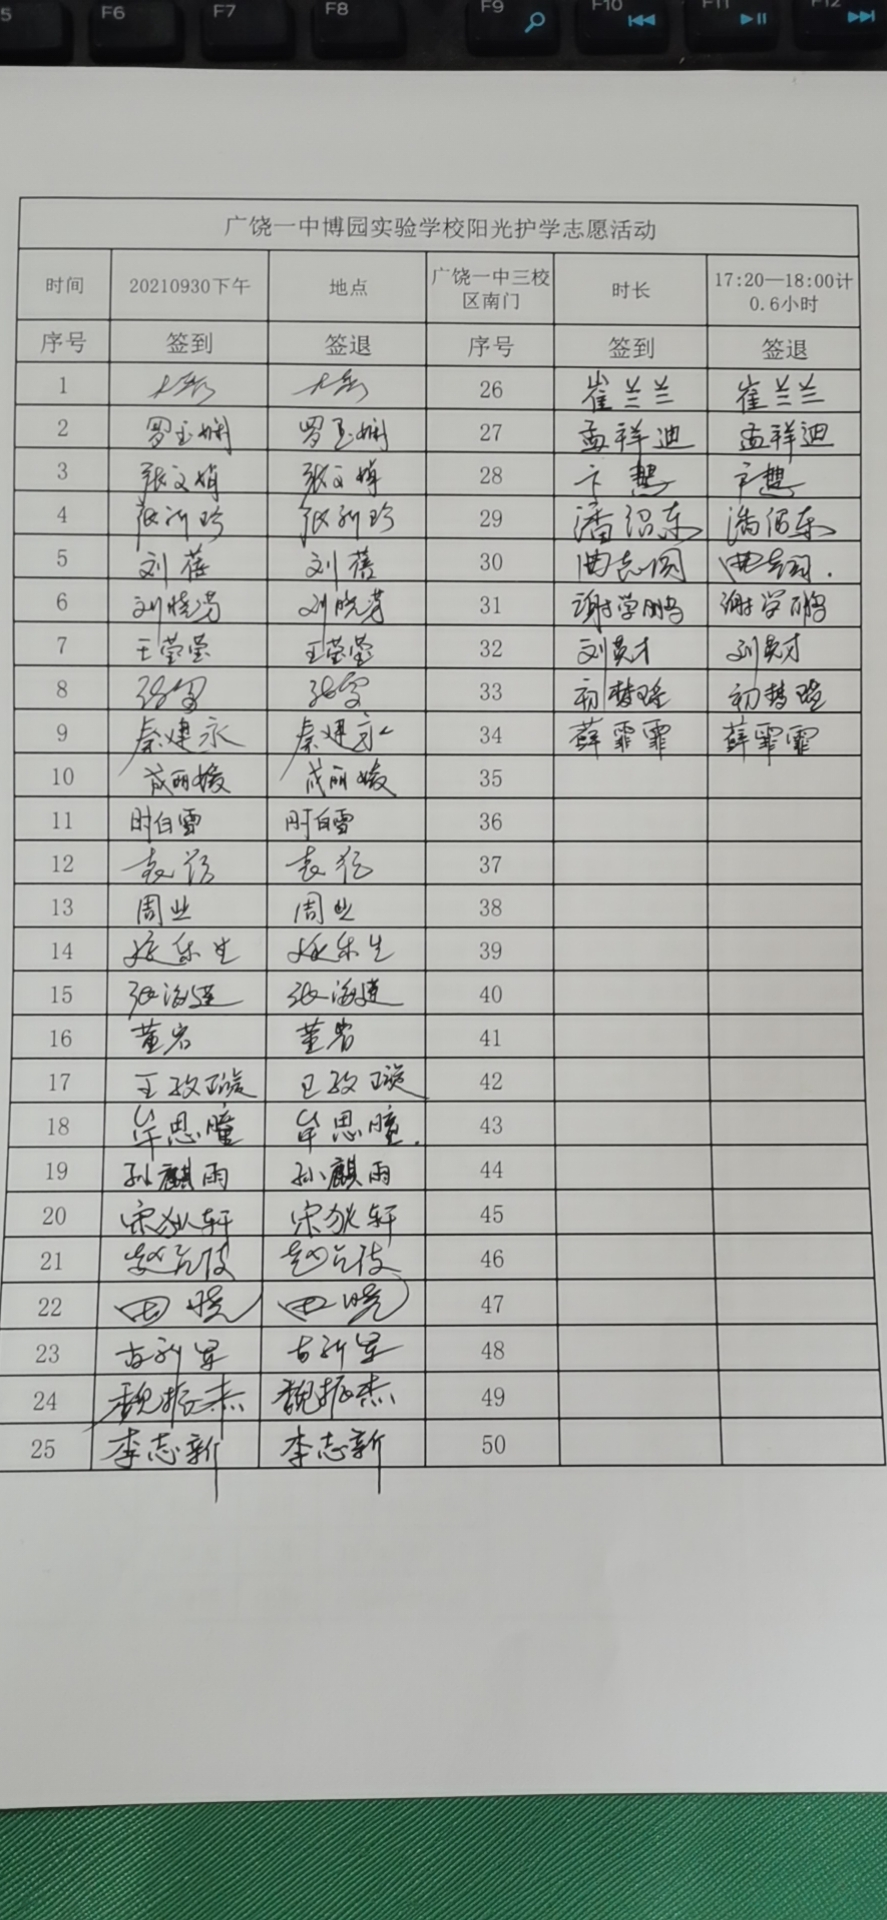 F6 F7 F8 F9 F10 F11 F12
广饶一中博园实验学校阳光护学志愿活动
时间 20210930下午 地点 广饶一中三校区南门 时长 17:20—18:00计0.6小时
序号 签到 签退 序号 签到 签退
1 26 崔兰兰 崔兰兰
2 罗玉娴 罗玉娴 27 孟祥迪 孟祥迪
3 张文娟 张文娟 28 卞慧 卞慧
4 张新珍 张新珍 29 潘绍东 潘绍东
5 刘蓓 刘蓓 30 曲志圆 曲志圆.
6 刘晓芳 刘晓芳 31 谢学鹏 谢学鹏
7 王莹莹 王莹莹 32 刘英才 刘英才
8 33 初梦瑶 初梦瑶
9 秦建永 秦建永 34 薛霏霏 薛霏霏
10 成丽媛 成丽媛 35
11 时白雪 时白雪 36
12 37
13 周业 周业 38
14 39
15 张海莲 张海莲 40
16 董岩 董岩 41
17 王孜璇 王孜璇 42
18 牟思瞳 牟思瞳. 43
19 孙麒雨 孙麒雨 44
20 宋狄轩 宋狄轩 45
21 46
22 田晓 田晓 47
23 古新军 古新军 48
24 魏振杰 魏振杰 49
25 李志新 李志新 50